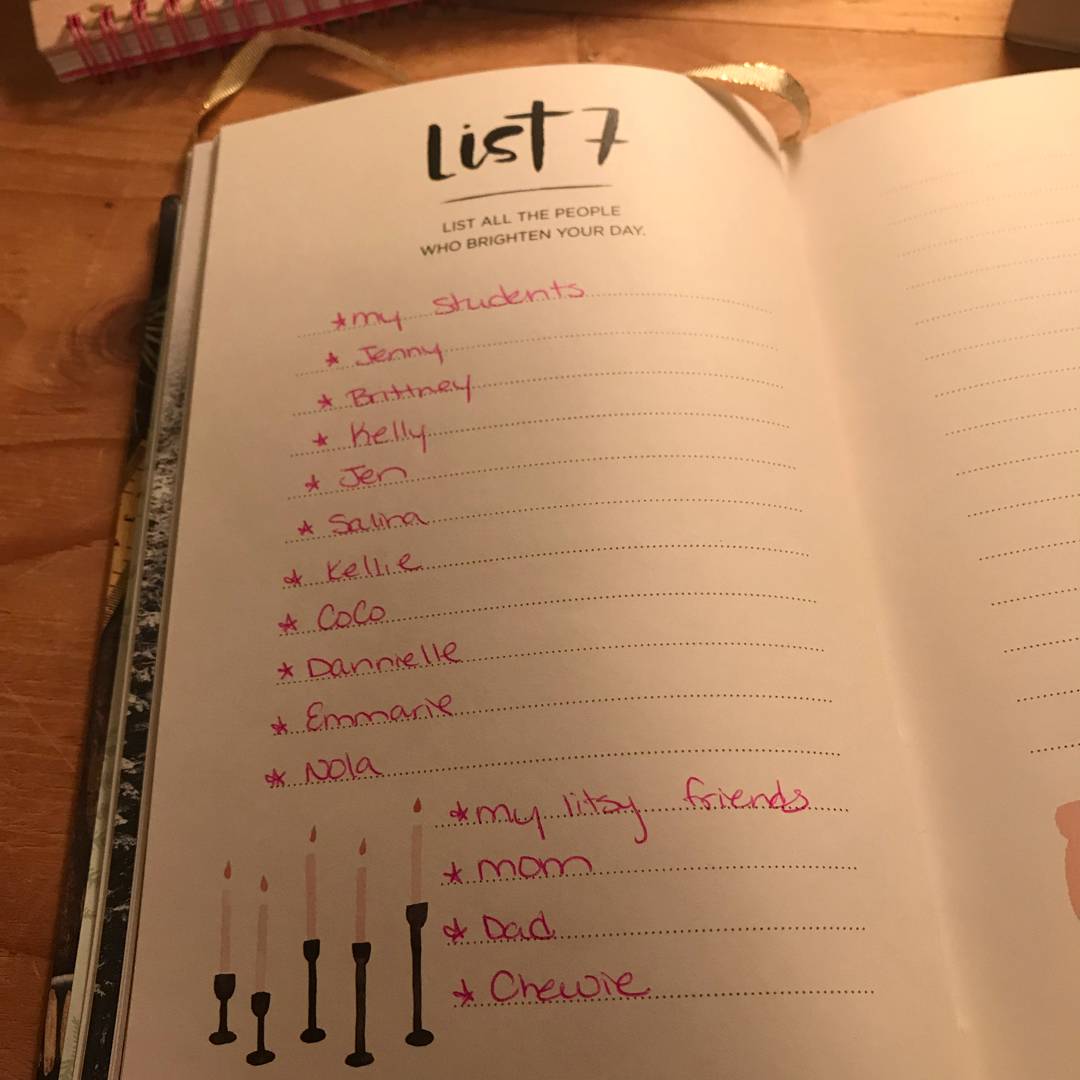 List 7
LIST ALL THE PEOPLE
WHO BRIGHTEN YOUR DAY.
*my students
* Jenny
* Brittney
* Kelly
* Jen
* Salina
* Kellie
* CoCo
* Dannielle
* Emmarie
* Nola
*my litsy friends
* mom
* Dad
* Chewie